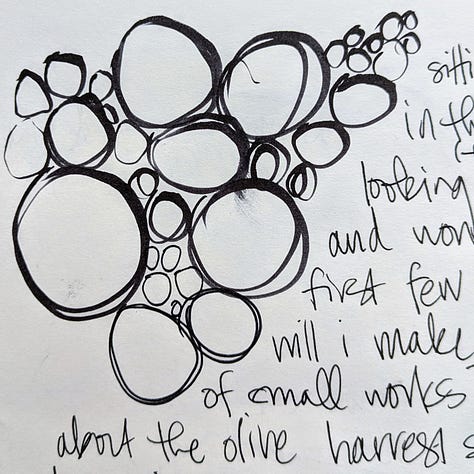 sitti
in th
looking
and won
first few
will i make
of small works
about the olive harvest s